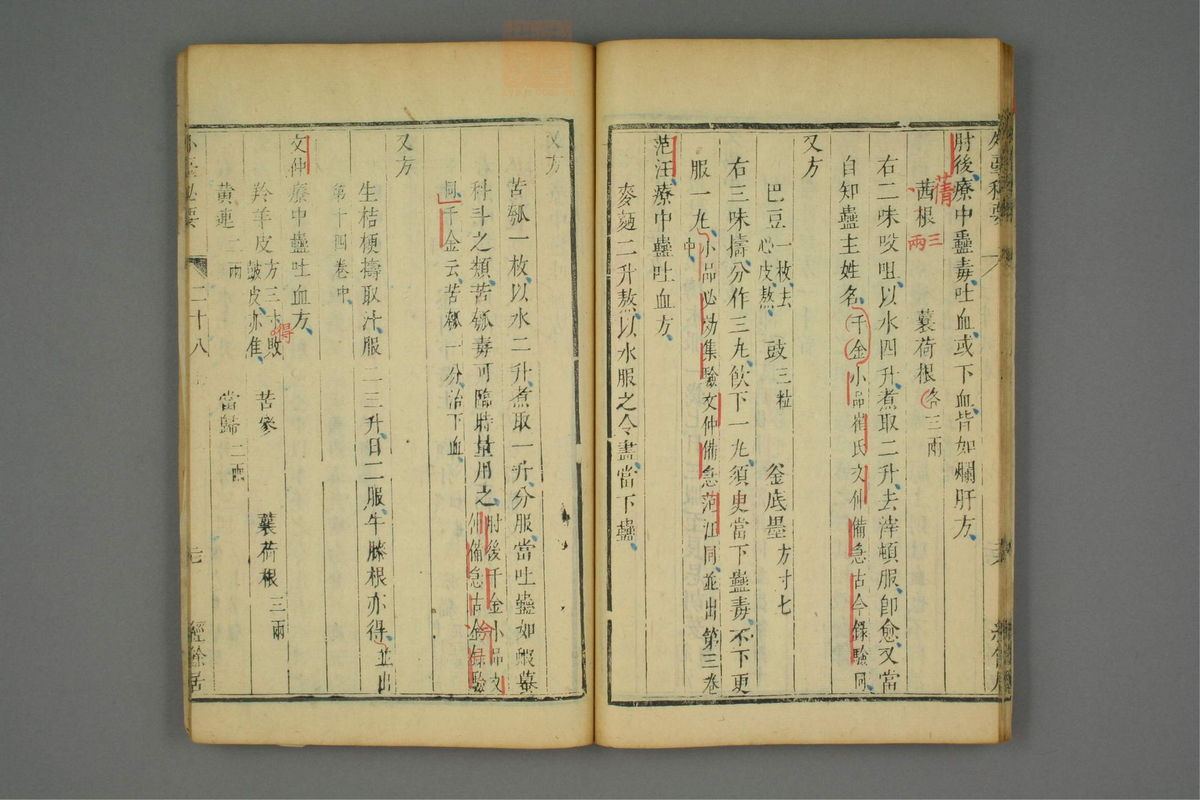 外臺秘要
肘後療中蠱毒吐血或下血皆如爛肝方
茜根 蘘荷根各三兩
蒨
三兩
右二味㕮咀以水四升煮取二升去滓頓服即愈又當
自知蠱主姓名千金小品崔氏文仲備急古今錄驗同
又方
巴豆一枚去心皮熬 豉三粒 釜底墨方寸匕
右三味擣分作三丸飲下一丸須臾當下蠱毒不下更
服一丸小品必効集驗文仲備急范汪同並出第三卷中
范汪療中蠱吐血方
麥麪二升熬以水服之令盡當下蠱
又方
苦瓠一枚以水二升煮取一升分服當吐蠱如蝦蟇
科斗之類苦瓠毒可臨時量用之肘後千金小品文仲備急古今錄驗
同千金云苦瓠一分治下血
又方
生桔梗擣取汁服二三升日二服牛膝根亦得並出
第十四卷中
文仲療中蠱吐血方
羚羊皮方三寸得敗鼓皮亦佳 苦參 蘘荷根三兩
黃連二兩 當歸二兩
外臺秘要
二十八
經餘居